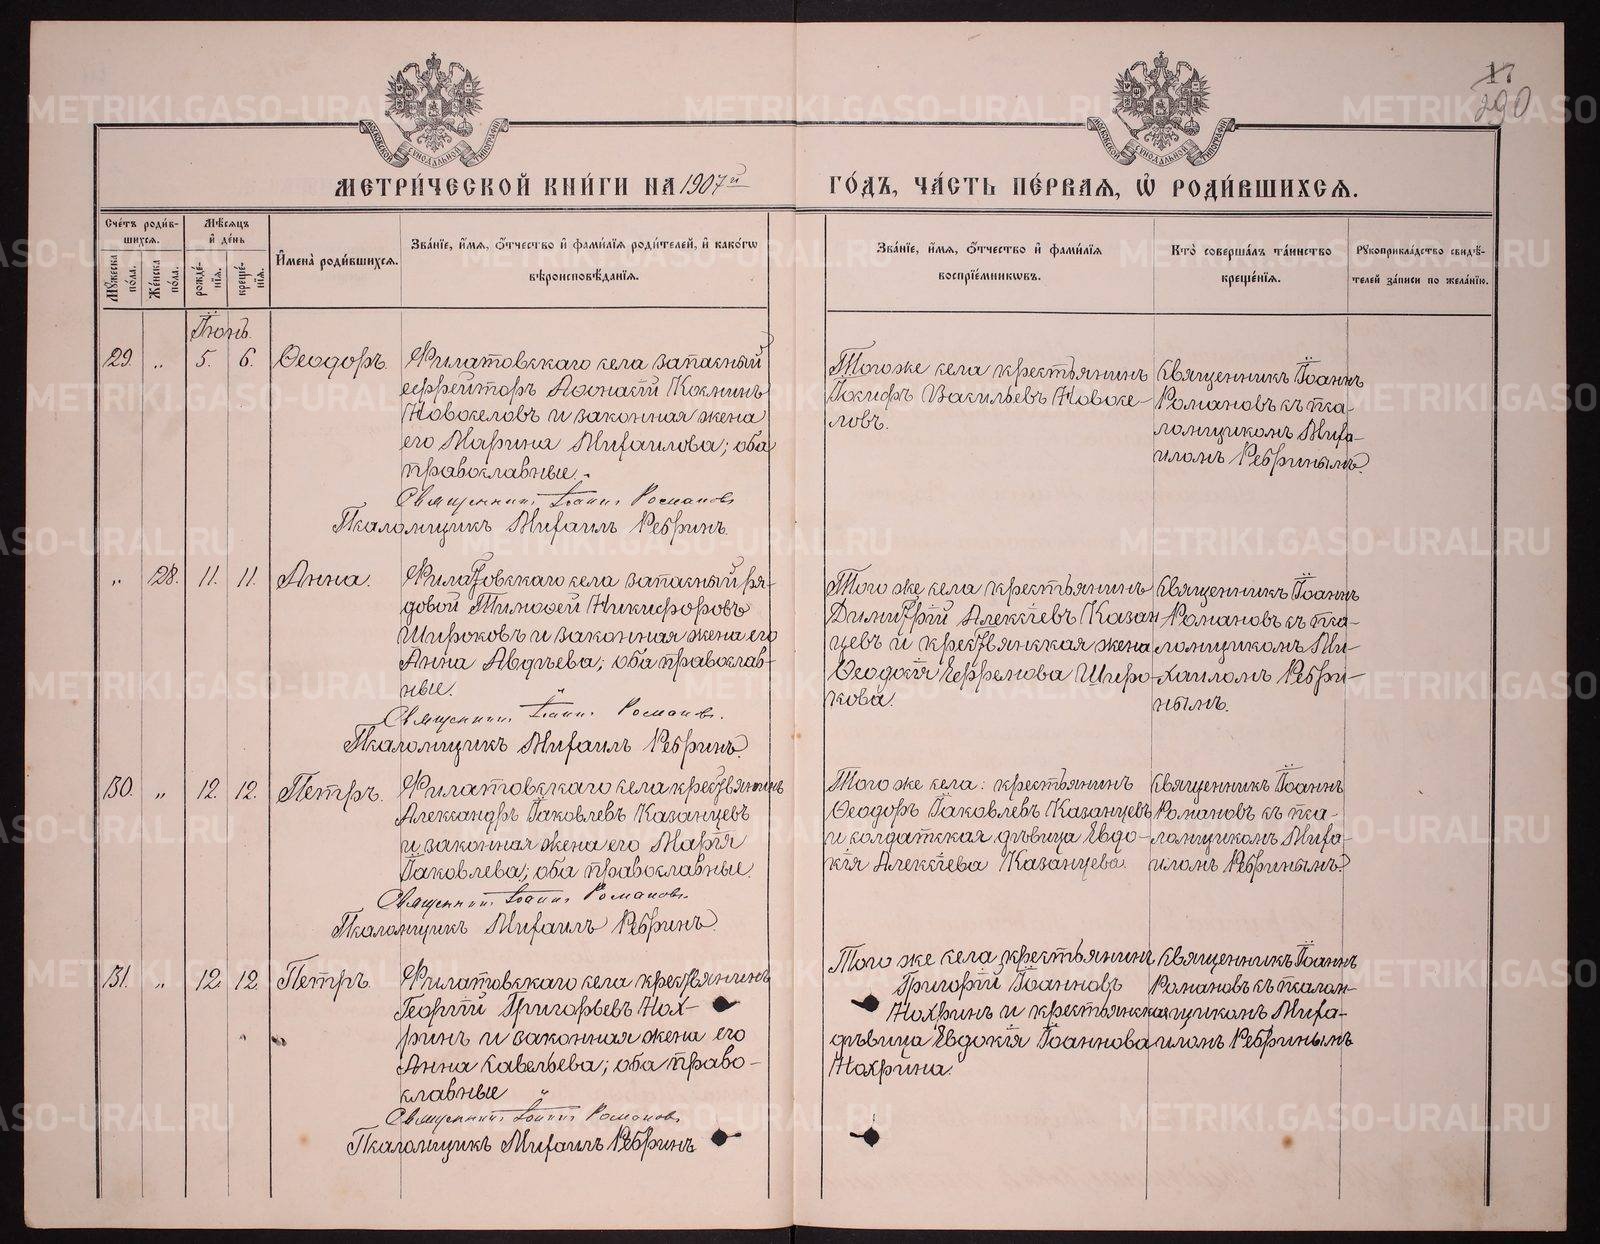 290
МОСКОВСКОЙ СУНОДАЛЬНОЙ ТИПОГРАФІИ
МОСКОВСКОЙ СУНОДАЛЬНОЙ ТИПОГРАФІИ
МЕТРИ́ЧЕСКОЙ КНИ́ГИ НА 1907й ГО́ДЪ, ЧА́СТЬ ПЕ́РВАЯ, Ѿ РОДИ́ВШИХСЯ.
Сче́тъ роди́в-
шихся.
Мужеска по́ла.
Же́нска по́ла.
Мѣ́сяцъ
и де́нь
рожде́-
нія.
креще́-
нія.
Имена̀ роди́вшихся.
Зва́ніе, и́мя, о́тчество и фами́лія роди́телей, и како́гѡ
вѣроисповѣ́данія.
Зва́ніе, и́мя, о́тчество и фами́лія
воспріе́мникѡвъ.
Кто̀ соверша́лъ та́инство
креще́нія.
Рукоприкла́дство свидѣ́-
телей за́писи по жела́нію.
Іюнь.
29. „ 5. 6. Ѳеодоръ.
Филатовскаго села запасный
ефрейторъ Аѳонасій Косминъ
Новоселовъ и законная жена
его Марина Михаилова; оба
православные.
Священникъ Іоаннъ Романовъ
Псаломщикъ Михаилъ Ребринъ.
Того же села крестьянинъ
Іосифъ Васильевъ Новосе-
ловъ.
Священникъ Іоаннъ
Романовъ съ пса-
ломщикомъ Миха-
иломъ Ребринымъ.
„ 28. 11. 11. Анна.
Филатовскаго села запасный ря-
довой Тимоѳей Никифоровъ
Широковъ и законная жена его
Анна Авдѣева; оба православ-
ные.
Священникъ Іоаннъ Романовъ.
Псаломщикъ Михаилъ Ребринъ.
Того же села крестьянинъ
Димитрій Алексіевъ Казан
цевъ и крестьянская жена
Ѳеодосія Ефремова Широ-
кова.
Священникъ Іоаннъ
Романовъ съ пса-
ломщикомъ Ми-
хаиломъ Ребри-
нымъ.
30. „ 12. 12. Петръ.
Филатовскаго села крестьянинъ
Александръ Іаковлевъ Казанцевъ
и законная жена его Марія
Іаковлева; оба православные.
Священникъ Іоаннъ Романовъ.
Псаломщикъ Михаилъ Ребринъ.
Того же села: крестьянинъ
Ѳеодоръ Іаковлевъ Казанцевъ
и солдатская дѣвица Евдо-
кія Алексіева Казанцева.
Священникъ Іоаннъ
Романовъ съ пса-
ломщикомъ Миха-
иломъ Ребринымъ.
31. „ 12. 12 Петръ.
Филатовскаго села крестьянинъ
Георгій Григорьевъ Нох-
ринъ и законная жена его
Анна Савельева; оба право-
славные
Священникъ Іоаннъ Романовъ.
Псаломщикъ Михаилъ Ребринъ
Того же села крестьянинъ
Григорій Іоанновъ
Нохринъ и крестьянская
дѣвица Евдокія Іоаннова
Нохрина.
Священникъ Іоаннъ
Романовъ съ псалом-
щикомъ Миха-
иломъ Ребринымъ
METRIKI.GASO-URAL.RU